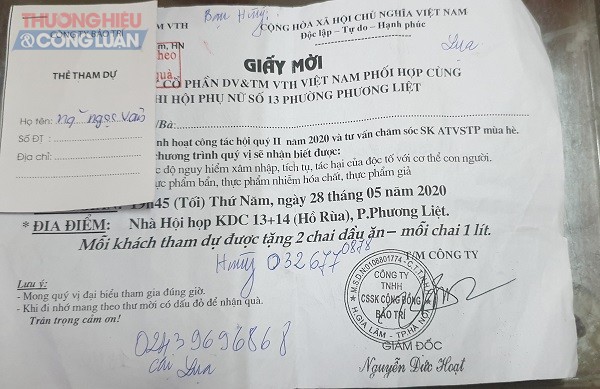 THƯƠNGHIỆU
&CÔNG LUẬN
CÔNG TY BẢO TRÌ
THẺ THAM DỰ
Họ tên:
Số ĐT :
Địa chỉ:
M VTH
Bạn Hưng
CỘNG HÒA XÃ HỘI CHỦ NGHĨA VIỆT NAM
Độc lập – Tự do – Hạnh phúc
m, HN
heo
quà
GIẤY MỜI
CỔ PHẦN DV&TM VTH VIỆT NAM PHỐI HỢP CÙNG
HI HỘI PHỤ NỮ SỐ 13 PHƯỜNG PHƯƠNG LIỆT
/Bà:
nh hoạt công tác hội quý II năm 2020 và tư vấn chăm sóc SK ATVSTP mùa hè.
chương trình quý vị sẽ nhận biết được:
độ nguy hiểm xâm nhập, tích tụ, tác hại của độc tố với cơ thể con người.
ực phẩm bẩn, thực phẩm nhiễm hóa chất, thực phẩm giả
h45 (Tối) Thứ Năm, ngày 28 tháng 05 năm 2020
* ĐIA ĐIỂM: Nhà Hội họp KDC 13+14 (Hồ Rùa), P.Phương Liệt.
Mỗi khách tham dự được tặng 2 chai dầu ăn – mỗi chai 1 lít.
Hưng 032677 0878
T/M CÔNG TY
Lưu ý:
- Mong quý vị đại biểu tham gia đúng giờ.
- Khi đi nhớ mang theo thư mời có dấu đỏ để nhận quà.
Trân trọng cảm ơn!
M.S.D.N:0108801774-C.T.T.N.H.H
CÔNG TY
TNHH
CSSK CỘNG ĐỒNG
BẢO TRÌ
H.GIA LÂM - TP.HÀ NỘI
0243 9696868
GIÁM ĐỐC
Nguyễn Đức Hoạt